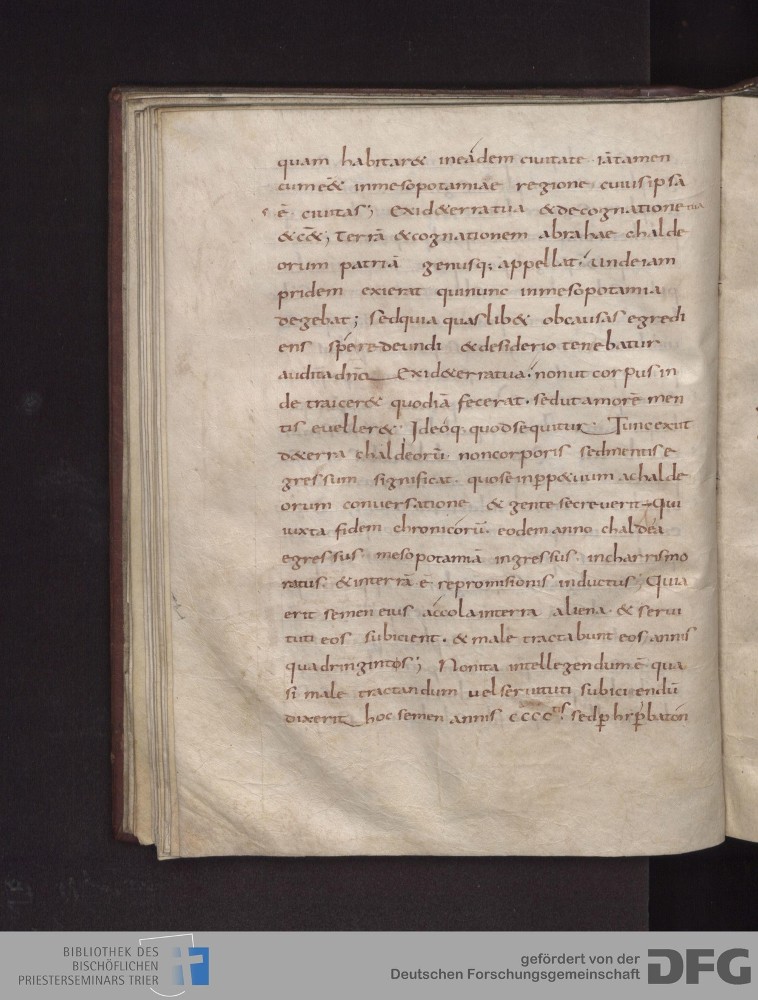 quam habitar& ineadem ciuitate · iātamen
cum eēt& inmesopotamiae regione cuius ipsa
ē ciuitas; Exid&erratua &decognatione tua
&c&; Terrā &cognationem abrahae chalde
orum patriā genusq; appellat· undeiam
pridem exierat quinunc inmesopotamia
degebat; sedquia quaslib& obcausas egredi
ens spe redeundi &desiderio tenebatur
audita dn̄o Exid&erratua· nonut corpus in
de traicer& quodiā fecerat· sedutamorē men
tis eueller&· Ideoq· quod sequitur· Tunc exiit
d&erra chaldeorū· noncorporis sedmentis e
gressum significat· quose inpp&uum achalde
orum conuersatione & gente secreuerit Qui
iuxta fidem chronicorū· eodem anno chaldea
egressus· mesopotamiā ingressus· incharrismo
ratus· &interrā ē repromissionis inductus; Quia
erit semen eius accola interra aliena· & serui
tuti eos subicient· & male tractabunt eos annis
quadringintos; Nonita intellegendum ē qua
si male tractandum uel seruituti subiciendū
dixerit hoc semen annis cccc tis sedp̄ hyp̄baton
BIBLIOTHEK DES
BISCHÖFLICHEN
PRIESTERSEMINARS TRIER
gefördert von der
Deutschen Forschungsgemeinschaft
DFG